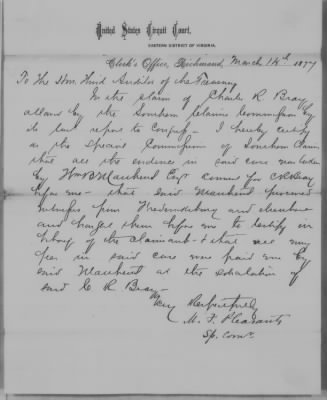 United States Circuit Court,
EASTERN DISTRICT OF VIRGINIA,
Clerk's Office, Richmond, March 14th 1877
To The Hon. Third Auditor of the Treasury
In the claim of Charles R Bray
allowed by the Southern Claims Commission by
its last report to Congress - I hereby certify
as the Special Commissioner of Southern Claims
that all the evidence in said case was taken
by Wm B Esqr counsel for C R Bray
before me - that said procured
witnesses from Fredericksburg and elsewhere
and brought them before me to testify in
behalf of the claimant - & that all my
fees in said case were paid me by
said at the solicitation of
said C. R Bray -
Very Respectfully
M. F. Pleasants
Sp. Comr.